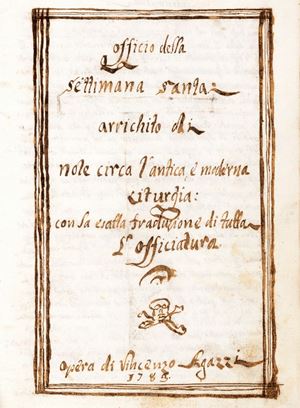 officio della
settimana santa
arrichito di
note circa l'antica, e moderna
Liturgia:
con la esatta traduzione di tutta
L'officiatura
opera di Vincenzo Agazzi